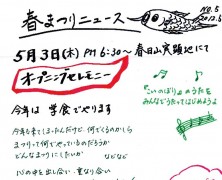 春まつりニュース
NO.5
2012.5
5月3日(木) PM6:30〜 春日山実験地にて
オープニングセレモニー
今年は 学食でやります
『こいのぼり』のうたを
みんなでうたってはじめよう
今年も寒くしまったんだけど、何でくるのかしら
まつりって何でやっているのだろうか
どんなまつりにしたいか などなど
心の中を出し合い、重なり合い